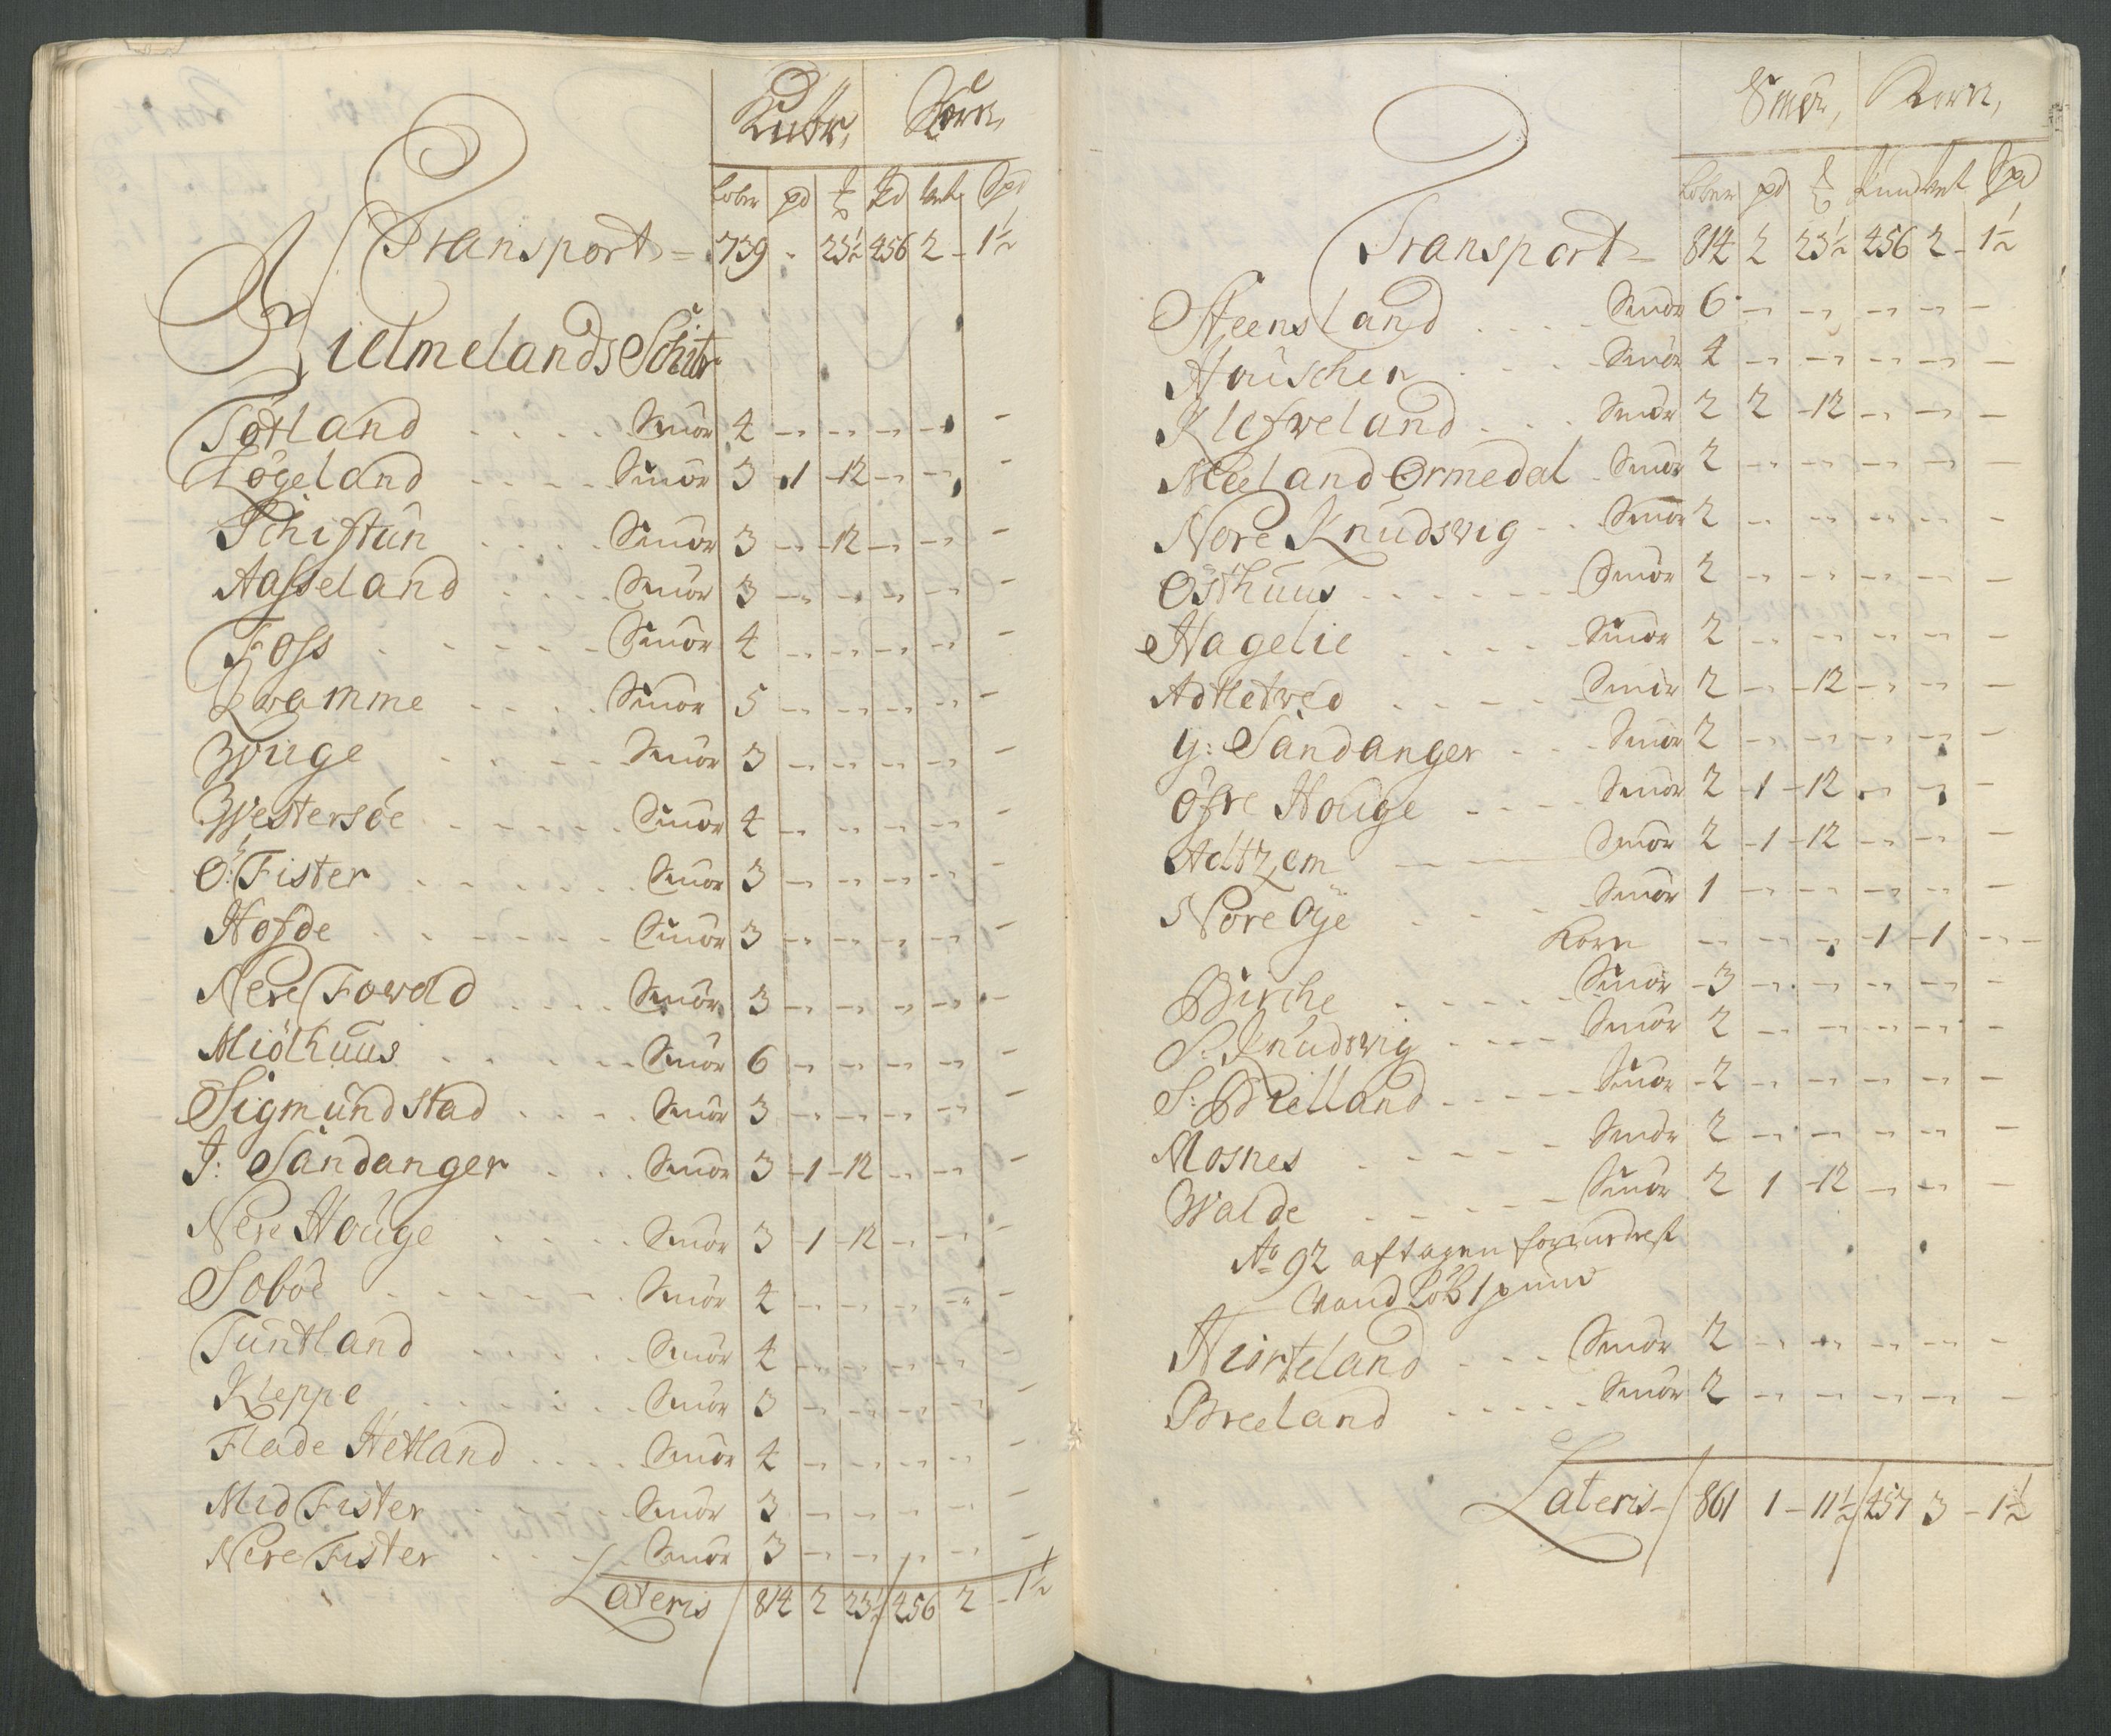 Smör, Korn,
Løber pd ℔ Pd Vet Spd
Transport = 739 - 23½ 456 2 - 1½
Hielmelands Schibr
Tøtland . . . . Smör 4 - - - - -
Løgeland . . . . Smör 3 1 12 - - -
Schiftun . . . . Smör 3 - 12 - - -
Aasseland . . . . Smör 3 - - - - -
Foss . . . . . Smör 4 - - - - -
Qvamme . . . . Smör 5 - - - - -
Wiige . . . . . Smör 3 - - - - -
Westersøe . . . . . Smör 4 - - - - -
Ö: Fister . . . . . . Smör 3 - - - - -
Hofde . . . . . . Smör 3 - - - - -
Nere Fowold . . . . Smör 3 - - - - -
Miölhuus . . . . . Smör 6 - - - - -
Sigmundstad . . . . Smör 3 - - - - -
J: Sandanger . . . Smör 3 1 12 - - -
Nere Houge . . . . . Smör 3 1 12 - - -
Soböe . . . . . . Smör 4 - - - - -
Tuntland . . . . . Smör 4 - - - - -
Kleppe . . . . . Smör 3 - - - - -
Flade Hetland . . . . Smör 4 - - - - -
Mid Fister . . . . Smör 3 - - - - -
Nere Fister . . . . Smör 3 - - - - -
Lateris 814 2 23½ 456 2 - 1½
Smör, Korn,
Løber pd ℔ Pund Vet Spd
Transport = 814 2 23½ 456 2 - 1½
Steensland . . . . Smör 6 - - - - -
Houschen . . . . Smör 4 - - - - -
Klefveland . . . Smör 2 2 12 - - -
Meeland Ormedal . Smör 2 - - - - -
Nore Knudsvig . . Smör 2 - - - - -
Østhuus . . . . . . Smör 2 - - - - -
Hagelie . . . . Smör 2 - - - - -
Adtletved . . . . Smör 2 - 12 - - -
y: Sandanger . . . Smör 2 - - - - -
Öfre Houge . . . . Smör 2 1 12 - - -
Heltzem Smör 2 1 12 - - -
Nore Øye . . . . Smör 1 - - - - -
Korn - - - 1 1 -
Birche . . . . . Smör 3 - - - - -
S: Knudsvig . . . . Smör 2 - - - - -
S: Bielland . . . . . Smör 2 - - - - -
Mosnes . . . . . Smör 2 - - - - -
Walde . . . . . Smör 2 1 12 - - -
Ao 92 aftagen formedelst
Vand Löb 1 pund
Hiorteland . . . Smör 2 - - - - -
Breeland . . . . . Smör 2 - - - - -
Lateris 861 1 - 11½ 457 3 - 1½